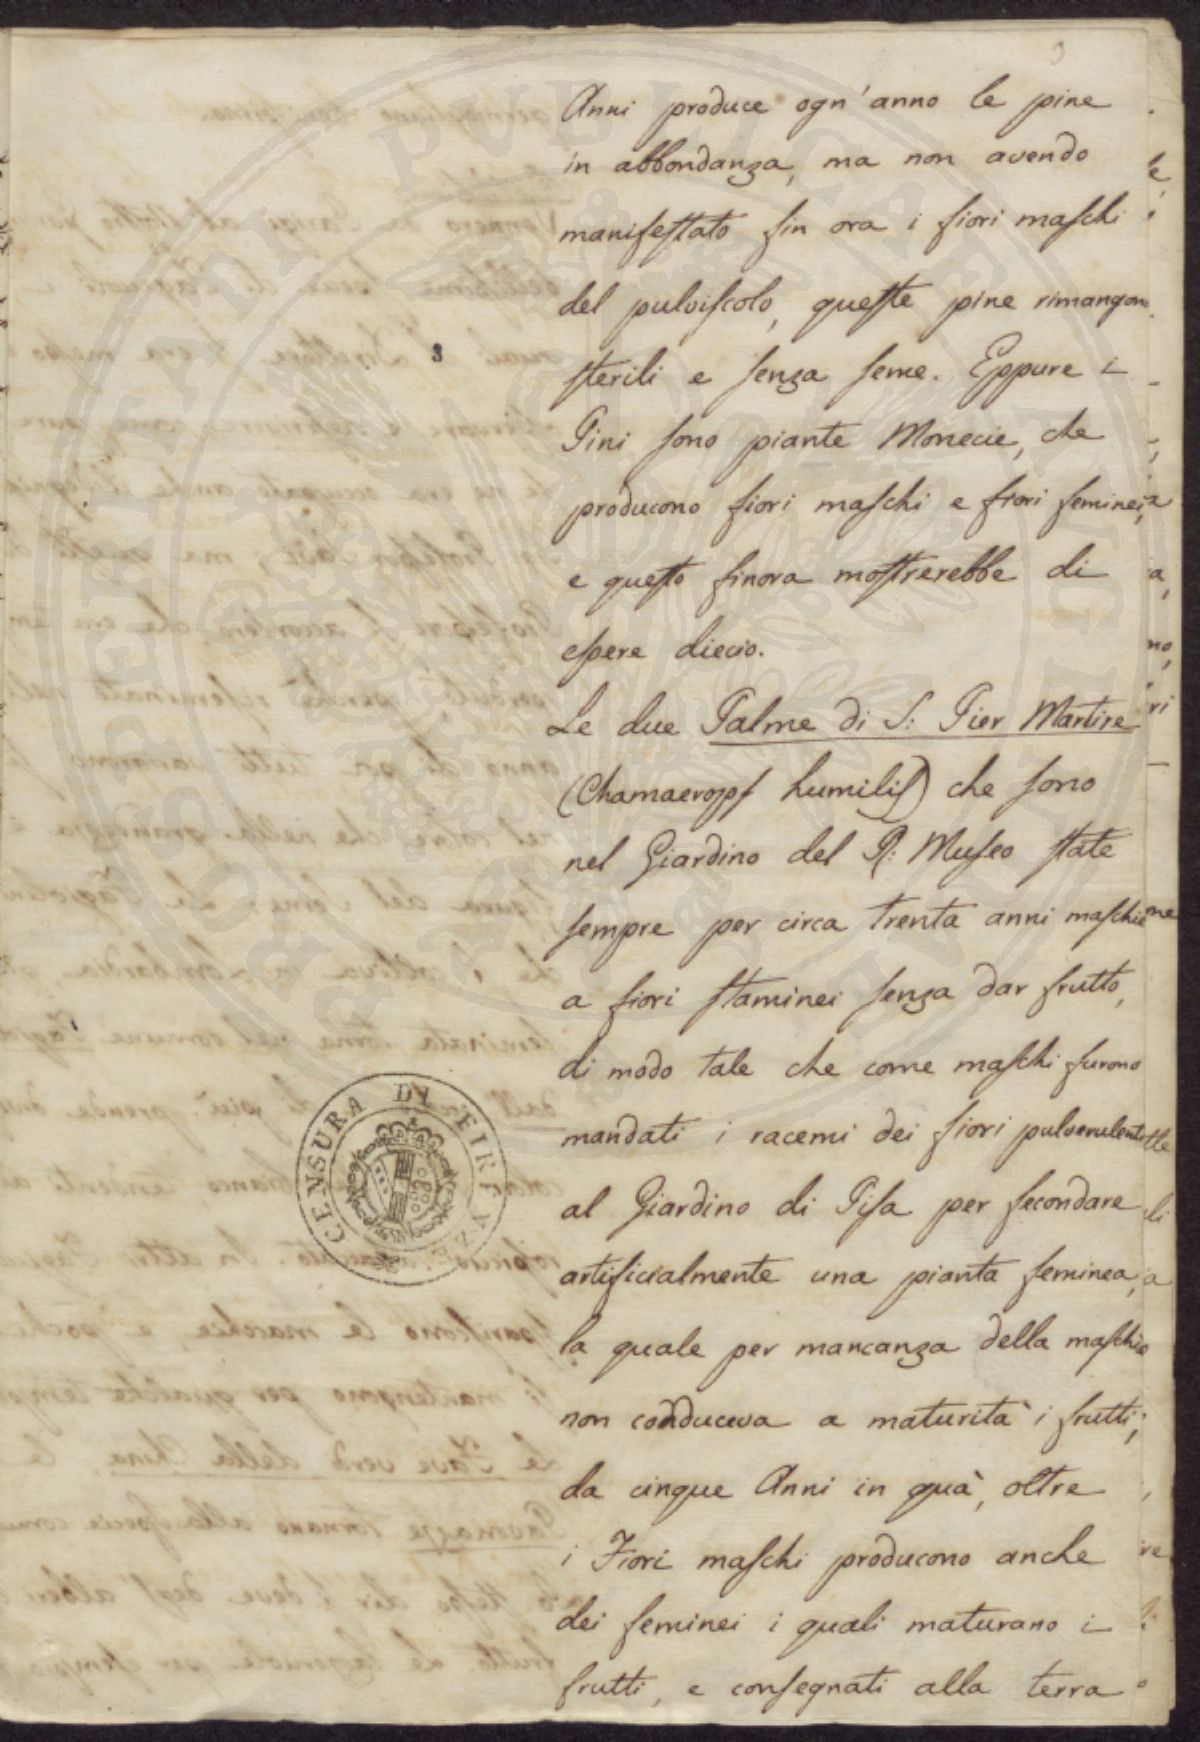 3
Anni produce ogn'anno le pine
in abbondanza, ma non avendo
manifeſtato fin ora i fiori maſchi
del pulviſcolo, queſte pine rimangono
ſterili e ſenza ſeme. Eppure i
Pini ſono piante Monecie, che
producono fiori maſchi e fiori feminei,
e queſto finora moſtrerebbe di
eſsere diecio.
Le due Palme di S: Pier Martire
(Chamaeropſ humiliſ) che ſono
nel Giardino del R: Muſeo ſtate
ſempre per circa trenta anni maſchie
a fiori ſtaminei ſenza dar frutto,
di modo tale che come maſchi furono
mandati i racemi dei fiori pulverulenti
al Giardino di Piſa per fecondare
artificialmente una pianta feminea,
la quale per mancanza della maſchio
non conduceva a maturità i frutti;
da cinque Anni in quà, oltre
i Fiori maſchi producono anche
dei feminei i quali maturano i
frutti, e conſegnati alla terra
CENSURA DI FIRENZE